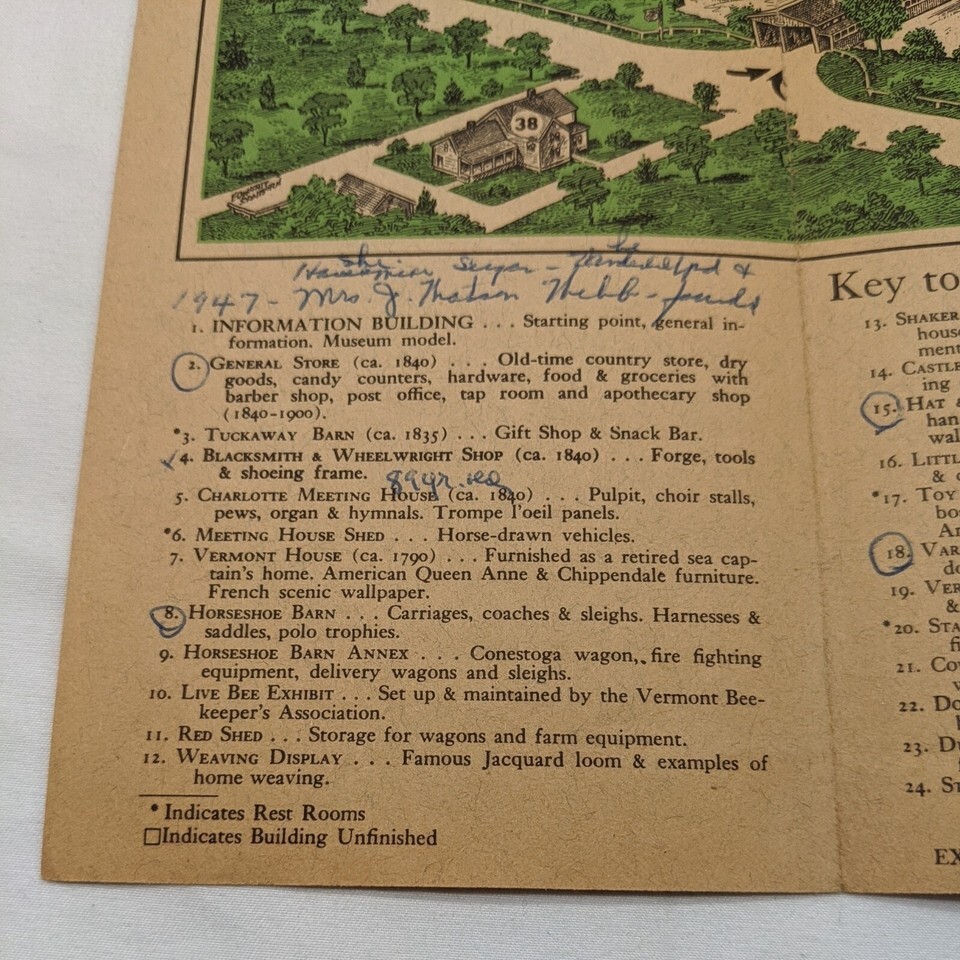 38
she
Havemire Sugar -
1947 - Mrs. J. Watson Webb -
1. INFORMATION BUILDING . . . Starting point, general in-
formation. Museum model.
2. GENERAL STORE (ca. 1840) . . . Old-time country store, dry
goods, candy counters, hardware, food & groceries with
barber shop, post office, tap room and apothecary shop
(1840-1900).
*3. TUCKAWAY BARN (ca. 1835) . . . Gift Shop & Snack Bar.
4. BLACKSMITH & WHEELWRIGHT SHOP (ca. 1840) . . . Forge, tools
& shoeing frame.
5. CHARLOTTE MEETING HOUSE (ca. 1840) . . . Pulpit, choir stalls,
pews, organ & hymnals. Trompe l'oeil panels.
*6. MEETING HOUSE SHED . . . Horse-drawn vehicles.
7. VERMONT HOUSE (ca. 1790) . . . Furnished as a retired sea cap-
tain's home. American Queen Anne & Chippendale furniture.
French scenic wallpaper.
8. HORSESHOE BARN . . . Carriages, coaches & sleighs. Harnesses &
saddles, polo trophies.
9. HORSESHOE BARN ANNEX . . . Conestoga wagon, fire fighting
equipment, delivery wagons and sleighs.
10. LIVE BEE EXHIBIT . . . Set up & maintained by the Vermont Bee-
keeper's Association.
11. RED SHED . . . Storage for wagons and farm equipment.
12. WEAVING DISPLAY . . . Famous Jacquard loom & examples of
home weaving.
* Indicates Rest Rooms
□Indicates Building Unfinished
Key to
13. SHAKER
hous
ment
14. CASTLE
ing
15. HAT &
han
wal
16. LITTL
& c
*17. TOY
bo
An
18. VAR
do
19. VER
&
*20. STA
fi
21. Co
22. Do
23. D
24. St
EX